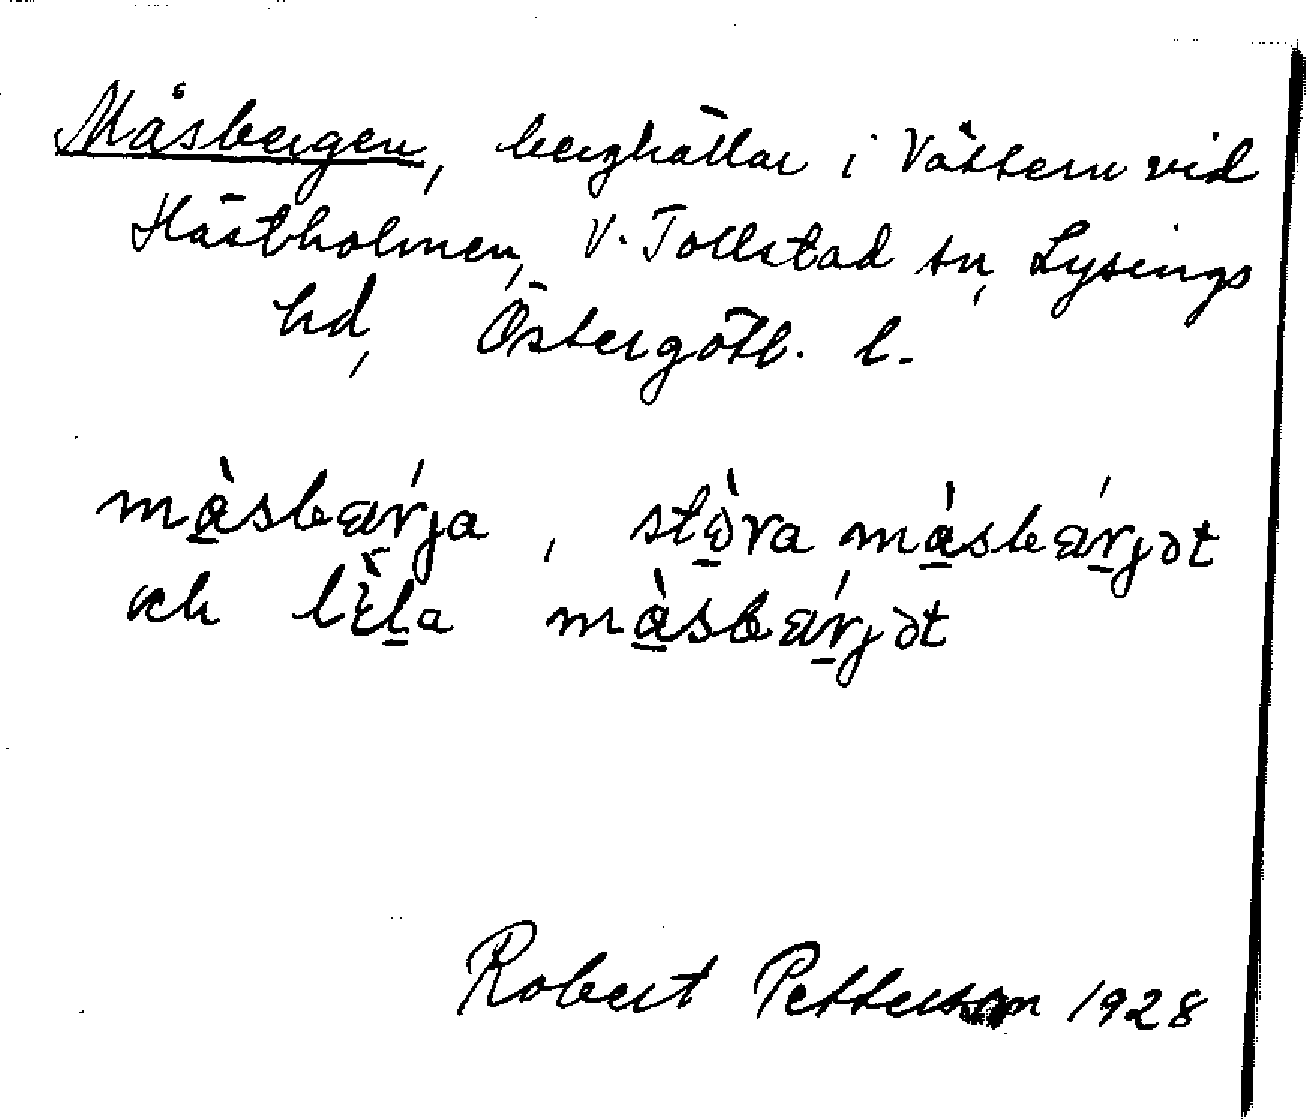 Måsbergen, berghällar i Vättern vid
Hästholmen, V. Tollstad sn, Lysings
hd, Östergötl. l.
màsbæŕja, stòra màsbæŕjət
och lìla màsbæŕjət
Robert Petterson 1928